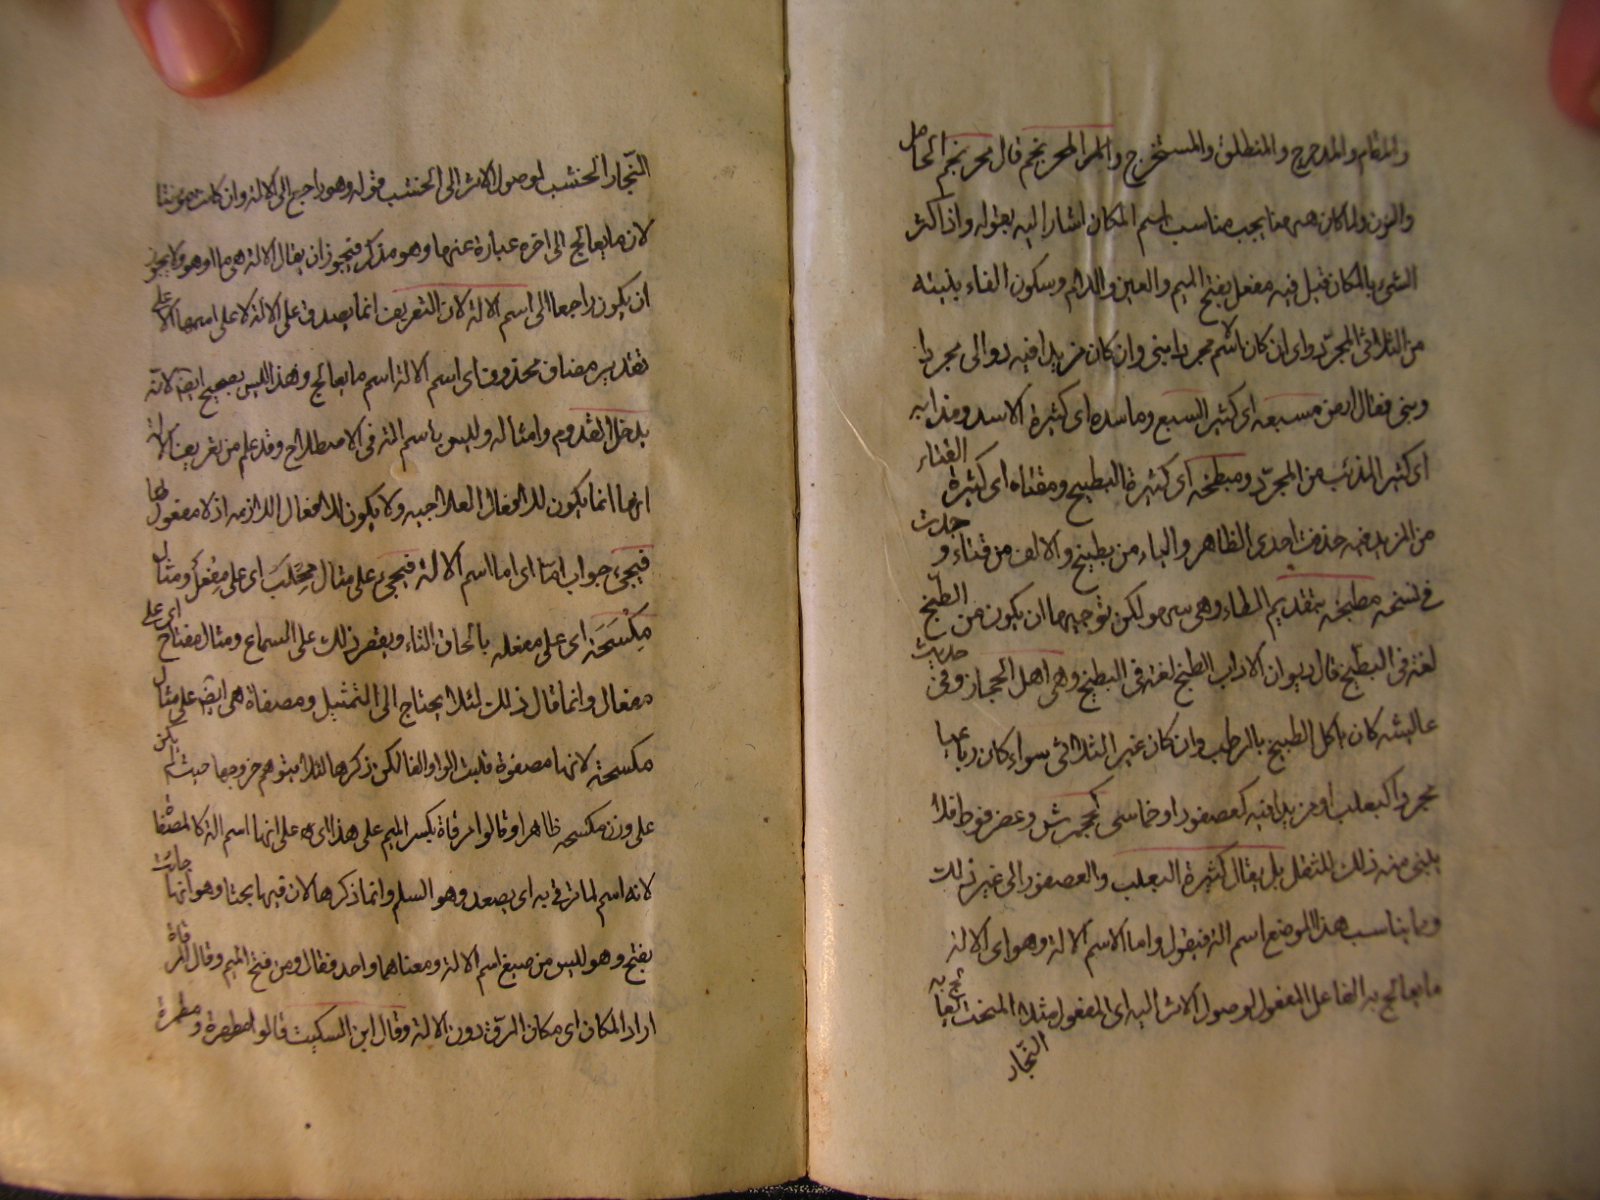 والمقام والمدحرج والمنطلق والمستخرج والمراد المحرنجم قال محرنجم الحامل
والنون ولما كان ههنا يجب مناسب اسم المكان اشار اليه بقوله واذا كثر
الشيء بالمكان قيل فيه مفعل بفتح الميم والعين واللام وسكون الفاء يبنيه
من الثلاثي المجرد اي ان كان الاسم مجردا بني وان كان مزيدا فيه رد الى مجرد
وبني فقال ارض مسبعة اي كثير السبع وماسدة اي كثيرة الاسد ومذابه
اي كثير الذئب من المجرد ومبطخة اي كثيرة البطيخ ومقثاة اي كثيرة القثاء
من المزيد فيه حذفت احدى الظاهر والياء من بطيخ والالف من قثاء و
في نسخة مطبخة بتقديم الطاء وهي سهو لكن توجيهها ان يكون من الطبيخ
لغة في البطيخ قال ديوان الادب الطبيخ لغة في البطيخ وهي اهل الحجاز وفي حديث
عائشة كان ياكل الطبيخ بالرطب وان كان غير الثلاثي سواء كان رباعيا
مجردا كثعلب او مزيدا فيه كعصفور او خماسي كجحمرش وعضرفوط فلا
يبنى منه ذلك للثقل بل يقال كثيرة الثعلب والعصفور الى غير ذلك
ومما يناسب هذا الموضع اسم الالة فيقول واما الاسم الالة وهو اي الالة
ما يعالج به الفاعل المفعول لوصول الاثر اليه اي المفعول مثلا المنحت يعالج به
النجار
النجار الخشب لوصول الاثر الى الخشب فقوله وهو راجع الى الالة وان كانت مؤنثا
لان ما يعالج الى اخره عبارة عنها وهو مذكر فيجوز ان يقال الالة هي ما او هو ولا يجوز
ان يكون راجعا الى اسم الالة لان التعريف انما يصدق على الالة لا على اسمها الا على
تقدير مضاف محذوف اي اسم الالة اسم ما يعالج وهذا ليس بصحيح ايضا لانه
يدخل القدوم وامثاله وليس باسم الة في الاصطلاح وقد علم من تعريف الالة
انها انما يكون للافعال العلاجية ولا يكون للافعال اللازمة اذ لا مفعول لها
فيجيء جواب اما اي اما اسم الالة فيجيء على مثال محلب اي على مفعل ومثال
مكسحة اي على مفعلة بالحاق التاء ويقصر ذلك على السماع ومثال مفتاح اي على
مفعال وانما قال ذلك لئلا يحتاج الى التمثيل ومصفاة هي ايضا على مثال
مكسحة لانها مصفوة قلبت الواو الفا لكن ذكرها لئلا يتوهم خروجها حيث لم يكن
على وزن مكسحة ظاهرا وقالوا مرقاة بكسر الميم على هذا اي على انها اسم الة كالمصفا
لانه اسم لما يرقى به اي يصعد وهو السلم وانما ذكرها لان فيها بحثا وهو انها جاءت
بفتح وهو ليس من صيغ اسم الالة ومعناهما واحد فقال ومن فتح الميم وقال المرقاة
اراد المكان اي مكان الرقي دون الالة وقال ابن السكيت قالوا مطهرة ومطهرة